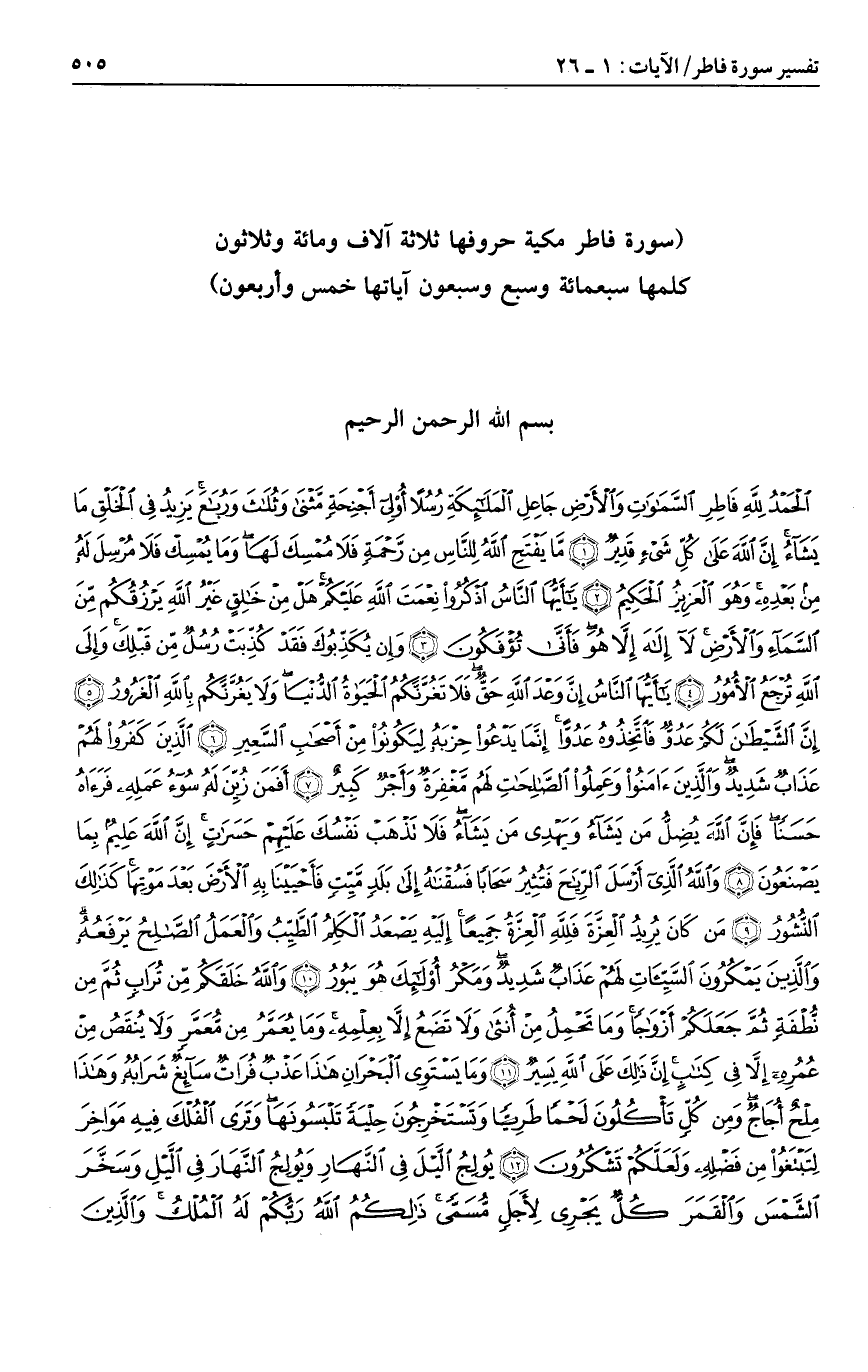 تفسير سورة فاطر/ الآيات: ١ ـ ٢٦ ٥٠٥
(سورة فاطر مكية حروفها ثلاثة آلاف ومائة وثلاثون
كلمها سبعمائة وسبع وسبعون آياتها خمس وأربعون)
بسم الله الرحمن الرحيم
ٱلْحَمْدُ لِلَّهِ فَاطِرِ ٱلسَّمَٰوَٰتِ وَٱلْأَرْضِ جَاعِلِ ٱلْمَلَٰٓئِكَةِ رُسُلًا أُو۟لِىٓ أَجْنِحَةٍ مَّثْنَىٰ وَثُلَٰثَ وَرُبَٰعَ ۚ يَزِيدُ فِى ٱلْخَلْقِ مَا
يَشَآءُ ۚ إِنَّ ٱللَّهَ عَلَىٰ كُلِّ شَىْءٍ قَدِيرٌ ١ مَّا يَفْتَحِ ٱللَّهُ لِلنَّاسِ مِن رَّحْمَةٍ فَلَا مُمْسِكَ لَهَا ۖ وَمَا يُمْسِكْ فَلَا مُرْسِلَ لَهُۥ
مِنۢ بَعْدِهِۦ ۚ وَهُوَ ٱلْعَزِيزُ ٱلْحَكِيمُ ٢ يَٰٓأَيُّهَا ٱلنَّاسُ ٱذْكُرُوا۟ نِعْمَتَ ٱللَّهِ عَلَيْكُمْ ۚ هَلْ مِنْ خَٰلِقٍ غَيْرُ ٱللَّهِ يَرْزُقُكُم مِّنَ
ٱلسَّمَآءِ وَٱلْأَرْضِ ۚ لَآ إِلَٰهَ إِلَّا هُوَ ۖ فَأَنَّىٰ تُؤْفَكُونَ ٣ وَإِن يُكَذِّبُوكَ فَقَدْ كُذِّبَتْ رُسُلٌ مِّن قَبْلِكَ ۚ وَإِلَى
ٱللَّهِ تُرْجَعُ ٱلْأُمُورُ ٤ يَٰٓأَيُّهَا ٱلنَّاسُ إِنَّ وَعْدَ ٱللَّهِ حَقٌّ ۖ فَلَا تَغُرَّنَّكُمُ ٱلْحَيَوٰةُ ٱلدُّنْيَا ۖ وَلَا يَغُرَّنَّكُم بِٱللَّهِ ٱلْغَرُورُ ٥
إِنَّ ٱلشَّيْطَٰنَ لَكُمْ عَدُوٌّ فَٱتَّخِذُوهُ عَدُوًّا ۚ إِنَّمَا يَدْعُوا۟ حِزْبَهُۥ لِيَكُونُوا۟ مِنْ أَصْحَٰبِ ٱلسَّعِيرِ ٦ ٱلَّذِينَ كَفَرُوا۟ لَهُمْ
عَذَابٌ شَدِيدٌ ۖ وَٱلَّذِينَ ءَامَنُوا۟ وَعَمِلُوا۟ ٱلصَّٰلِحَٰتِ لَهُم مَّغْفِرَةٌ وَأَجْرٌ كَبِيرٌ ٧ أَفَمَن زُيِّنَ لَهُۥ سُوٓءُ عَمَلِهِۦ فَرَءَاهُ
حَسَنًا ۖ فَإِنَّ ٱللَّهَ يُضِلُّ مَن يَشَآءُ وَيَهْدِى مَن يَشَآءُ ۖ فَلَا تَذْهَبْ نَفْسُكَ عَلَيْهِمْ حَسَرَٰتٍ ۚ إِنَّ ٱللَّهَ عَلِيمٌۢ بِمَا
يَصْنَعُونَ ٨ وَٱللَّهُ ٱلَّذِىٓ أَرْسَلَ ٱلرِّيَٰحَ فَتُثِيرُ سَحَابًا فَسُقْنَٰهُ إِلَىٰ بَلَدٍ مَّيِّتٍ فَأَحْيَيْنَا بِهِ ٱلْأَرْضَ بَعْدَ مَوْتِهَا ۚ كَذَٰلِكَ
ٱلنُّشُورُ ٩ مَن كَانَ يُرِيدُ ٱلْعِزَّةَ فَلِلَّهِ ٱلْعِزَّةُ جَمِيعًا ۚ إِلَيْهِ يَصْعَدُ ٱلْكَلِمُ ٱلطَّيِّبُ وَٱلْعَمَلُ ٱلصَّٰلِحُ يَرْفَعُهُۥ ۚ
وَٱلَّذِينَ يَمْكُرُونَ ٱلسَّيِّـَٔاتِ لَهُمْ عَذَابٌ شَدِيدٌ ۖ وَمَكْرُ أُو۟لَٰٓئِكَ هُوَ يَبُورُ ١٠ وَٱللَّهُ خَلَقَكُم مِّن تُرَابٍ ثُمَّ مِن
نُّطْفَةٍ ثُمَّ جَعَلَكُمْ أَزْوَٰجًا ۚ وَمَا تَحْمِلُ مِنْ أُنثَىٰ وَلَا تَضَعُ إِلَّا بِعِلْمِهِۦ ۚ وَمَا يُعَمَّرُ مِن مُّعَمَّرٍ وَلَا يُنقَصُ مِنْ
عُمُرِهِۦٓ إِلَّا فِى كِتَٰبٍ ۚ إِنَّ ذَٰلِكَ عَلَى ٱللَّهِ يَسِيرٌ ١١ وَمَا يَسْتَوِى ٱلْبَحْرَانِ هَٰذَا عَذْبٌ فُرَاتٌ سَآئِغٌ شَرَابُهُۥ وَهَٰذَا
مِلْحٌ أُجَاجٌ ۖ وَمِن كُلٍّ تَأْكُلُونَ لَحْمًا طَرِيًّا وَتَسْتَخْرِجُونَ حِلْيَةً تَلْبَسُونَهَا ۖ وَتَرَى ٱلْفُلْكَ فِيهِ مَوَاخِرَ
لِتَبْتَغُوا۟ مِن فَضْلِهِۦ وَلَعَلَّكُمْ تَشْكُرُونَ ١٢ يُولِجُ ٱلَّيْلَ فِى ٱلنَّهَارِ وَيُولِجُ ٱلنَّهَارَ فِى ٱلَّيْلِ وَسَخَّرَ
ٱلشَّمْسَ وَٱلْقَمَرَ كُلٌّ يَجْرِى لِأَجَلٍ مُّسَمًّى ۚ ذَٰلِكُمُ ٱللَّهُ رَبُّكُمْ لَهُ ٱلْمُلْكُ ۚ وَٱلَّذِينَ